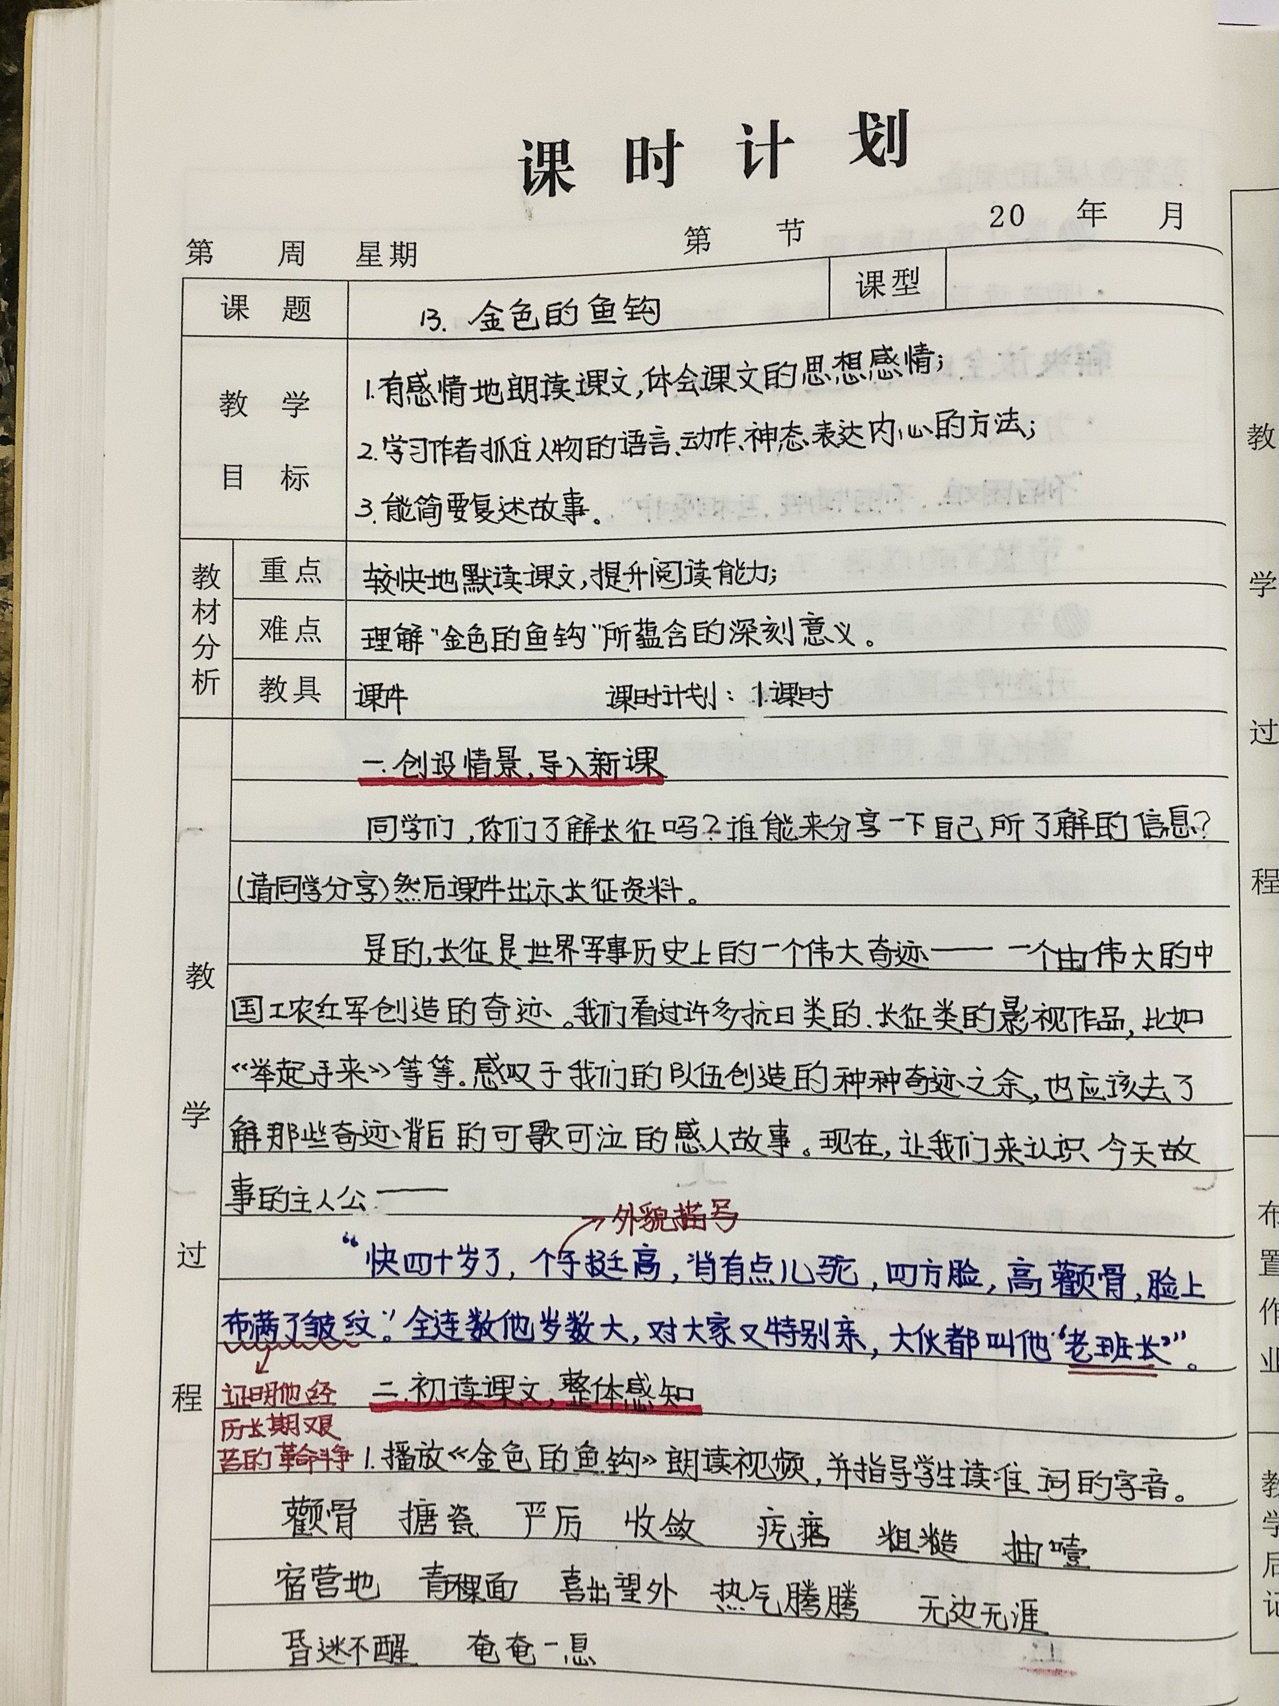 课时计划
第 周 星期 第 节 20 年 月
课题 13. 金色的鱼钩 课型
教学目标
1.有感情地朗读课文,体会课文的思想感情;
2.学习作者抓住人物的语言、动作、神态、表达内心的方法;
3.能简要复述故事。
教材分析
重点 较快地默读课文,提升阅读能力;
难点 理解“金色的鱼钩”所蕴含的深刻意义。
教具 课件 课时计划:1课时
教学过程
一.创设情景,导入新课
同学们,你们了解长征吗?谁能来分享一下自己所了解的信息?
(请同学分享)然后课件出示长征资料。
是的,长征是世界军事历史上的一个伟大奇迹——一个由伟大的中
国工农红军创造的奇迹。我们看过许多抗日类的、长征类的影视作品,比如
《举起手来》等等。感叹于我们的队伍创造的种种奇迹之余,也应该去了
解那些奇迹背后的可歌可泣的感人故事。现在,让我们来认识今天故
事的主人公——
外貌描写
“快四十岁了,个子挺高,背有点儿驼,四方脸,高颧骨,脸上
布满了皱纹。”全连数他岁数大,对大家又特别亲,大伙都叫他“老班长”。
证明他经
历长期艰
苦的革命斗争
二.初读课文,整体感知
1.播放《金色的鱼钩》朗读视频,并指导学生读准词的字音。
颧骨 搪瓷 严厉 收敛 疙瘩 粗糙 抽噎
宿营地 青稞面 喜出望外 热气腾腾 无边无涯
昏迷不醒 奄奄一息
教
学
过
程
布
置
作
业
教
学
后
记